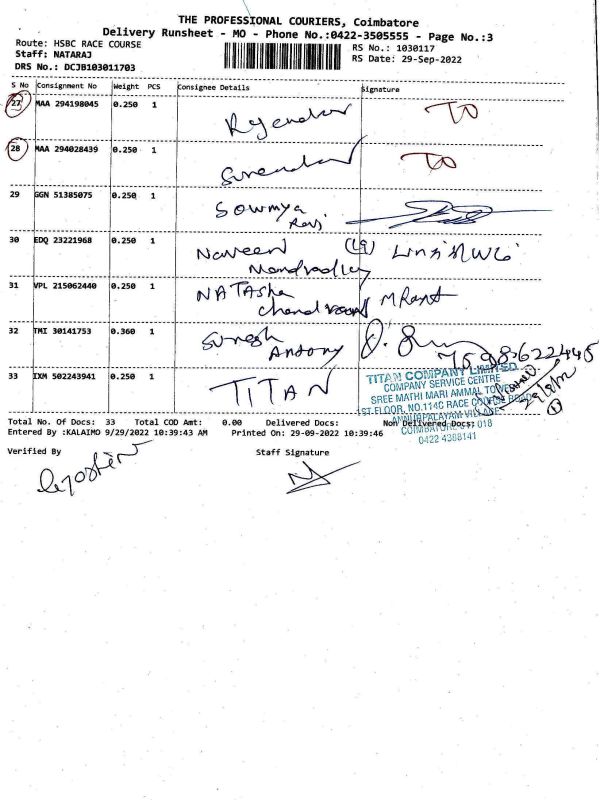 THE PROFESSIONAL COURIERS, Coimbatore
Delivery Runsheet - MO - Phone No.:0422-3505555 - Page No.:3
Route: HSBC RACE COURSE
Staff: NATARAJ
DRS No.: DCJB103011703
RS No.: 1030117
RS Date: 29-Sep-2022
S No Consignment No Weight PCS Consignee Details Signature
27 MAA 294198045 0.250 1 TO
28 MAA 294028439 0.250 1 TO
29 GGN 51385075 0.250 1 Sowmya
Ravi
30 EDQ 23221968 0.250 1 Naveen
31 VPL 215062440 0.250 1 NATASHA
32 TMI 30141753 0.360 1 Suresh
Antony
7598622445
33 IXM 502243941 0.250 1 TITAN
TITAN COMPANY LIMITED
COMPANY SERVICE CENTRE
SREE MATHI MARI AMMAL TOWER
1ST FLOOR, NO.114C RACE COURSE ROAD
ANNUPALAYAM VILLAGE
COIMBATORE 641 018
0422 4388141
Total No. Of Docs: 33 Total COD Amt: 0.00 Delivered Docs: Non Delivered Docs:
Entered By :KALAIMO 9/29/2022 10:39:43 AM Printed On: 29-09-2022 10:39:46
Verified By Staff Signature